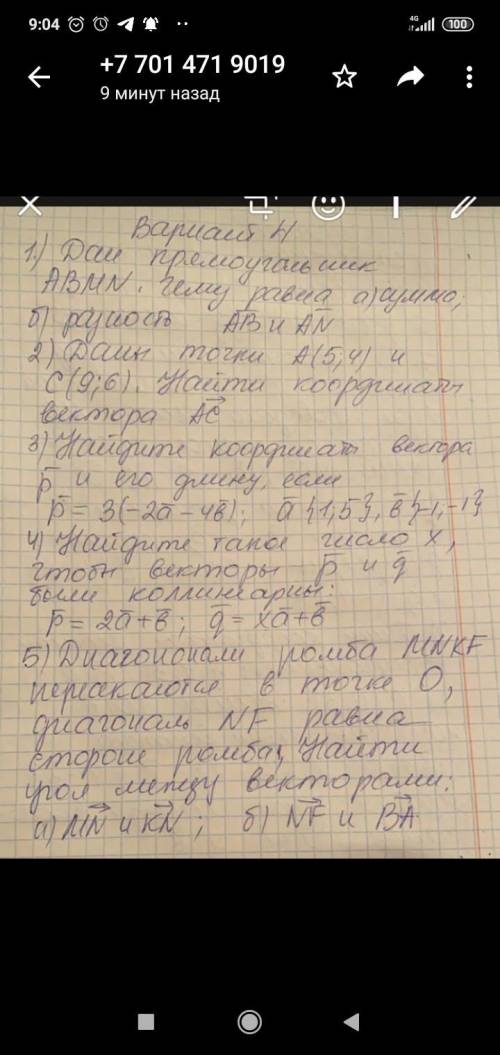 9:04 4G 100
+7 701 471 9019
9 минут назад
Вариант 4
1.) Дан прямоугольник
ABMN. Чему равна а) сумма;
б) разность AB и AN
2) Даны точки A(5;4) и
C(9;6). Найти координаты
вектора AC
3) Найдите координаты вектора
p и его длину, если
p = 3(-2a - 4b); a {1,5}, b {-1,-1}
4) Найдите такое число x,
чтобы векторы p и q
были коллинеарны:
p = 2a + b; q = xa + b
5) Диагонали ромба MNKF
пересекаются в точке O,
диагональ NF равна
стороне ромба, Найти
угол между векторами:
а) MN и KN; б) NF и BA